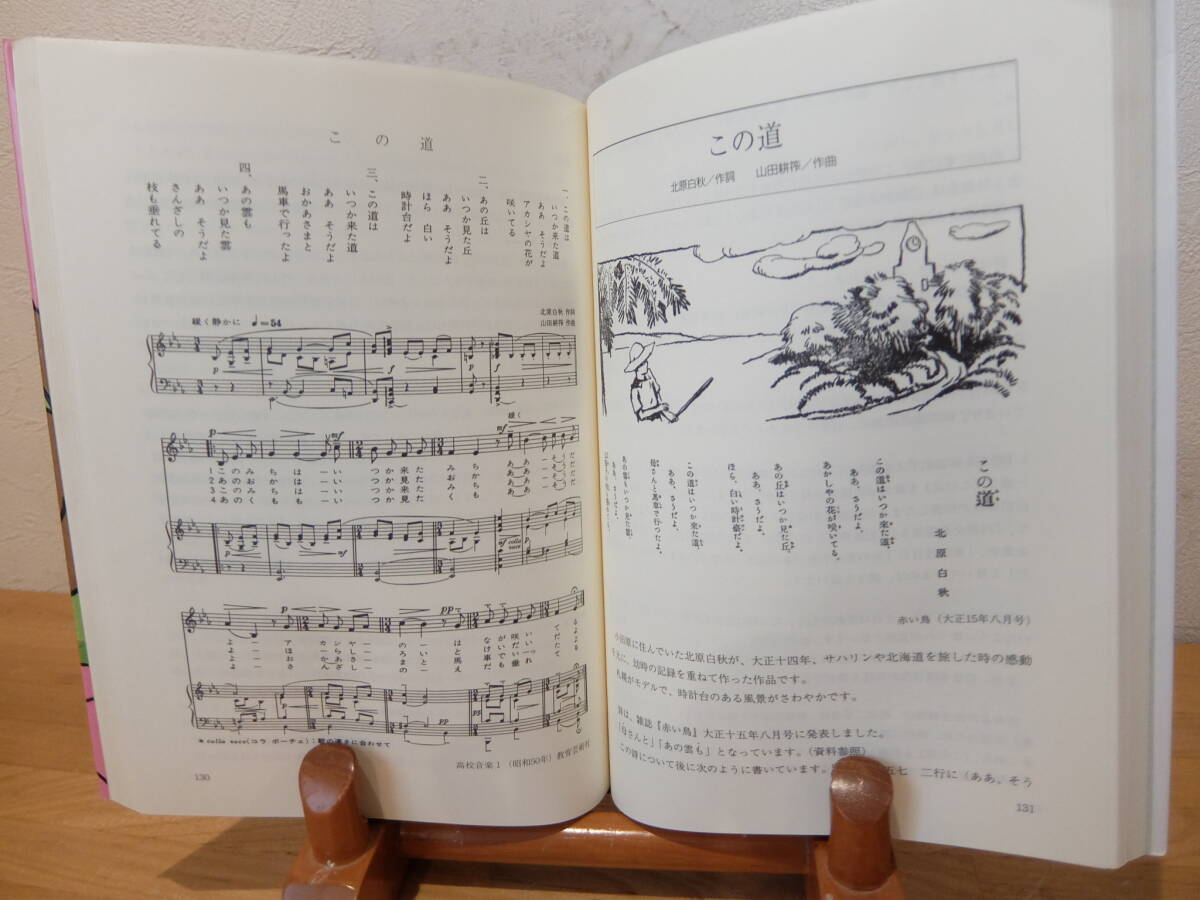 この道
一、この道は
いつか来た道
ああ そうだよ
アカシヤの花が
咲いてる
二、あの丘は
いつか見た丘
ああ そうだよ
ほら 白い
時計台だよ
三、この道は
いつか来た道
ああ そうだよ
おかあさまと
馬車で行ったよ
四、あの雲も
いつか見た雲
ああ そうだよ
さんざしの
枝も垂れてる
北原白秋 作詞
山田耕筰 作曲
緩く静かに ♩=54
緩く
1 このみちは いつかきた
* colla voce(コラ ボーチェ):歌の速さに合わせて
高校音楽1(昭和50年)教育芸術社
130
この道
北原白秋/作詞 山田耕筰/作曲
この道
北原白秋
この道はいつか來た道、
ああ、さうだよ、
あかしやの花が咲いてる。
あの丘はいつか見た丘、
ああ、さうだよ、
ほら、白い時計臺だよ。
この道はいつか來た道、
ああ、さうだよ、
母さんと馬車で行つたよ。
あの雲もいつか見た雲、
ああ、さうだよ、
赤い鳥(大正15年八月号)
小田原に住んでいた北原白秋が、大正十四年、サハリンや北海道を旅した時の感動
を元に、幼時の記録を重ねて作った作品です。
札幌がモデルで、時計台のある風景がさわやかです。
詩は、雑誌『赤い鳥』大正十五年八月号に発表しました。
「母さんと」「あの雲も」となっています。(資料参照)
この詩について後に次のように書いています。 五七 二行に(ああ、そう
131